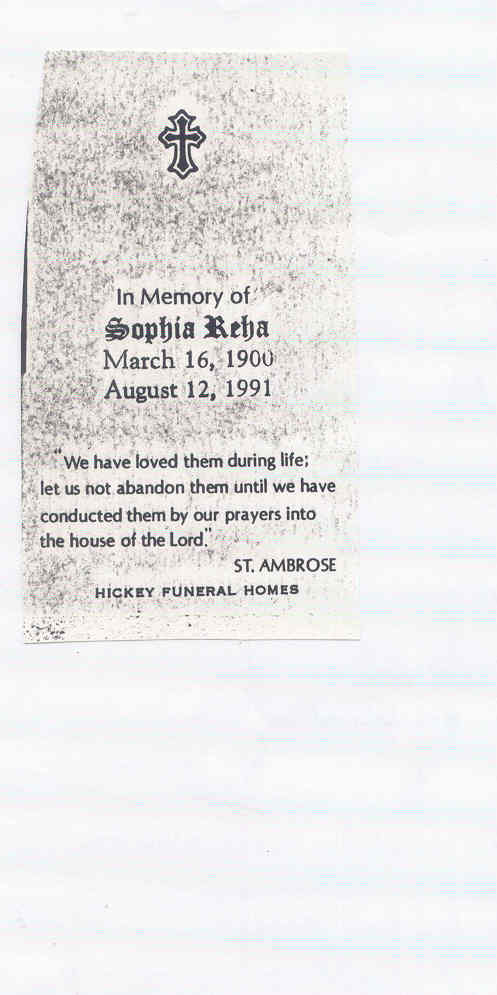 In Memory of
Sophia Reha
March 16, 1900
August 12, 1991
"We have loved them during life;
let us not abandon them until we have
conducted them by our prayers into
the house of the Lord."
ST. AMBROSE
HICKEY FUNERAL HOMES